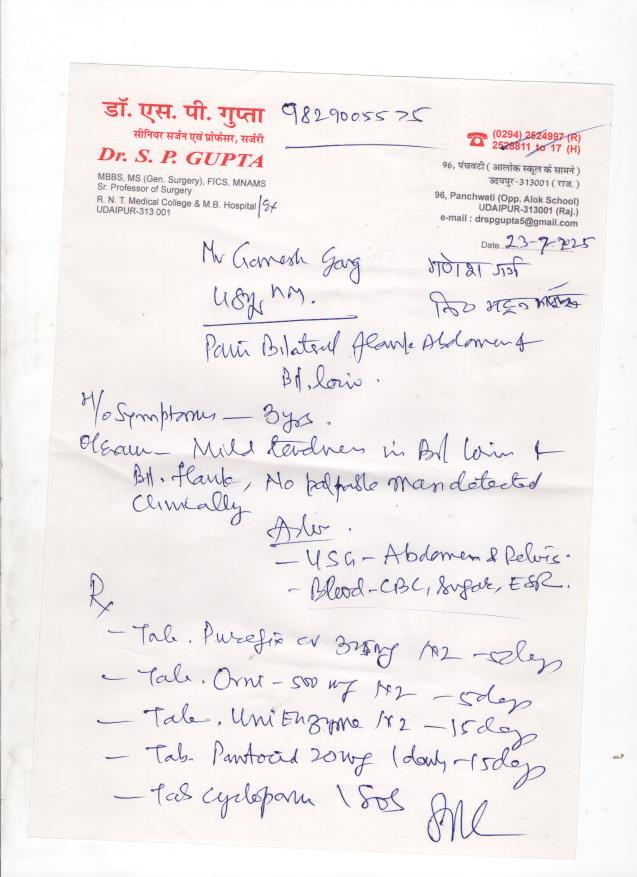 डॉ. एस. पी. गुप्ता 9829005575
सीनियर सर्जन एवं प्रोफेसर, सर्जरी
Dr. S. P. GUPTA
MBBS, MS (Gen. Surgery), FICS, MNAMS
Sr. Professor of Surgery
R. N. T. Medical College & M.B. Hospital /Ex
UDAIPUR-313 001
(0294) 2524997 (R)
2528811 to 17 (H)
96, पंचवटी ( आलोक स्कूल के सामने )
उदयपुर-313001 ( राज. )
96, Panchwati (Opp. Alok School)
UDAIPUR-313001 (Raj.)
e-mail : drspgupta5@gmail.com
Date 23-7-2025
Mr Ganesh Garg गणेश गर्ग
Pain Bilateral flank Abdomen &
B/l. loin.
H/o Symptoms — 3 yrs.
O/Exam — Mild tenderness in B/l loin &
B/l. flank, No palpable mass detected
Clinically
Adv.
— USG - Abdomen & Pelvis.
- Blood - CBC, Sugar, ESR.
Rx
— Tab. Purefix cv x2 — 5 days
— Tab. Orni - 500 mg x2 — 5 days
— Tab. UniEnzyme x2 — 15 days
— Tab. Pantocid 20 mg 1 daily — 15 days
— Tab Cyclopam 1 SOS